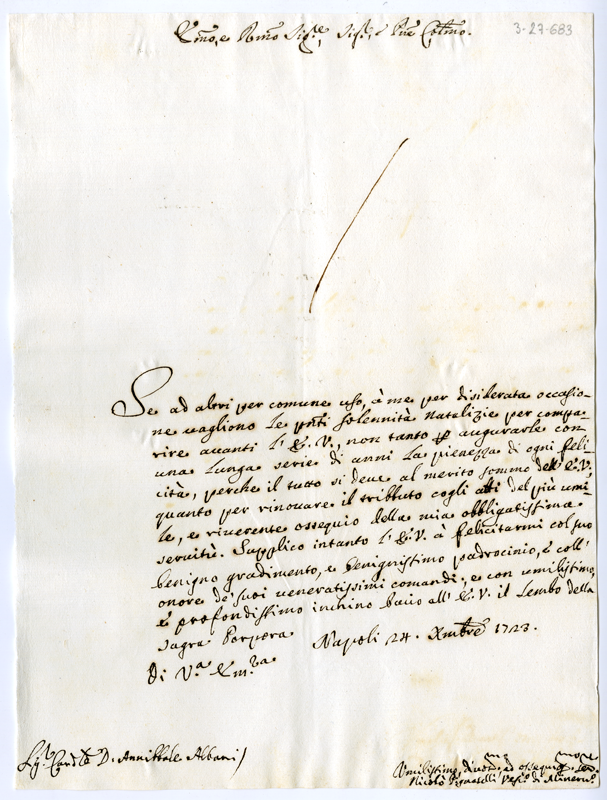 Em̃o, e Rm̃o Sig.re, Sig.re, e Pne Col̃mo.
3-27-683
Se ad altri per comune uso, à me per disiderata occasio-
ne vagliono le pñti solennità natalizie per compa-
rire avanti l'E.V., non tanto p augurarle con
una lunga serie di anni la pienezza di ogni feli-
cità, perche il tutto si deve al merito sommo dell'E.V.,
quanto per rinovare il tributo cogli atti del più umi-
le, e riverente ossequio della mia obbligatissima
servitù. Supplico intanto l'E.V. à felicitarmi col suo
benigno gradimento, e benignissimo padrocinio, e coll'
onore de' suoi veneratissimi comandi; e con umilissimo,
e profondissimo inchino bacio all'E.V. il lembo della
sagra Porpora Napoli 24. Xmbre 1723.
di V.a Em.za
Sig.r Cardle D. Annibale Albani
Umilissimo, ed ossequ
Nicolò Vesc.o di